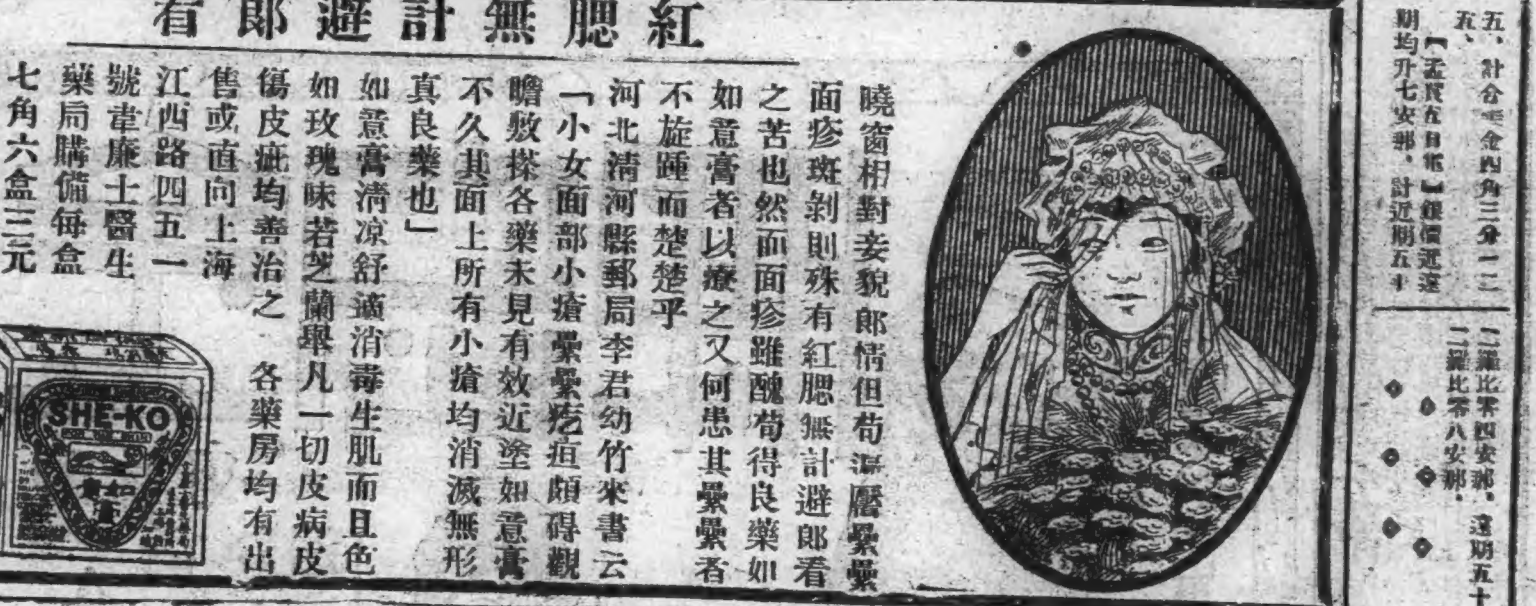 五、計分
金四角三分一二
五、
【孟買五日電】銀價近遠
期均升七安那、計近期五十
二羅比零四安那、遠期五十
二羅比零八安那、
紅腮無計避郎有
曉窗相對妾貌郎情但苟
靨纍纍
面疹斑剝則殊有紅腮無計避郎看
之苦也然而面疹雖醜苟得良藥如
如意膏者以療之又何患其纍纍者
不旋踵而楚楚乎
河北淸河縣郵局李君幼竹來書云
「小女面部小瘡纍纍疙疸頗碍觀
瞻敷搽各藥未見有效近塗如意膏
不久其面上所有小瘡均消滅無形
真良藥也」
如意膏淸凉舒適消毒生肌而且色
如玫瑰味若芝蘭舉凡一切皮病皮
傷皮疵均善治之 各藥房均有出
售或直向上海
江西路四五一
號韋廉士醫生
藥局購備每盒
七角六盒三元
SHE-KO
膏意如